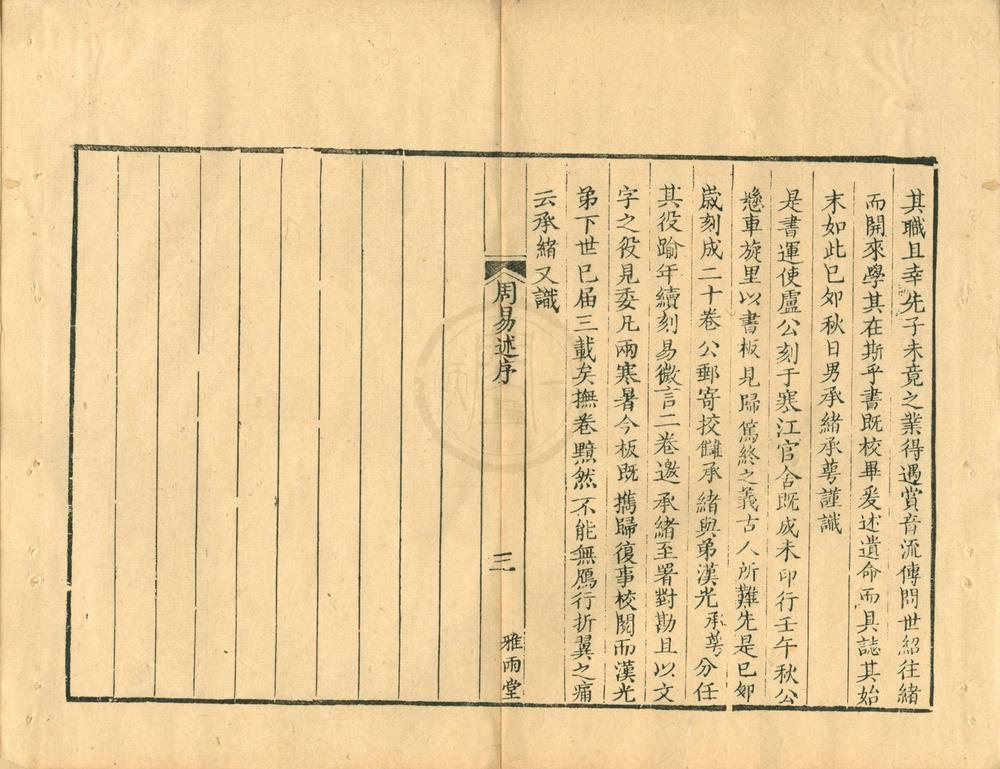 其職且幸先子未竟之業得遇賞音流傳問世紹往緒
而開來學其在斯乎書既校畢爰述遺命而具誌其始
末如此己卯秋日男承緒承萼謹識
是書運使盧公刻于寒江官舍既成未印行壬午秋公
懸車旋里以書板見歸篤終之義古人所難先是己卯
歲刻成二十卷公郵寄挍讎承緒與弟漢光承萼分任
其役踰年續刻易微言二卷邀承緒至署對勘且以文
字之役見委凡兩寒暑今板既攜歸復事校閱而漢光
弟下世已届三載矣撫卷黯然不能無鴈行折翼之痛
云承緒又識
周易述序
三
雅雨堂